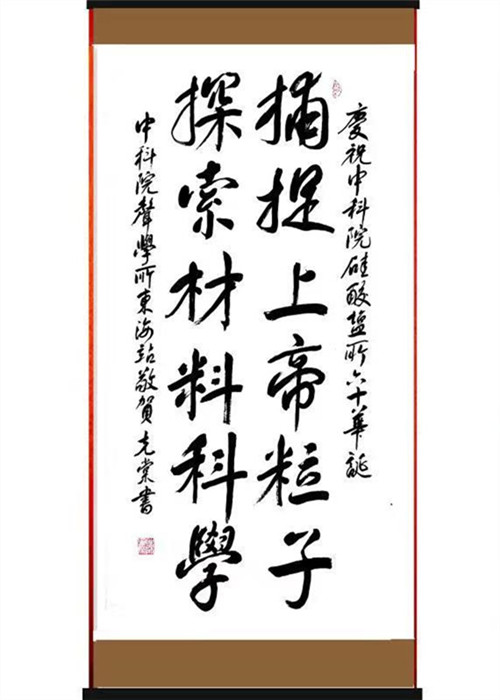 慶祝中科院硅酸盐所六十華誕
捕捉上帝粒子
探索材料科學
中科院聲學所東海站敬賀 克棠書